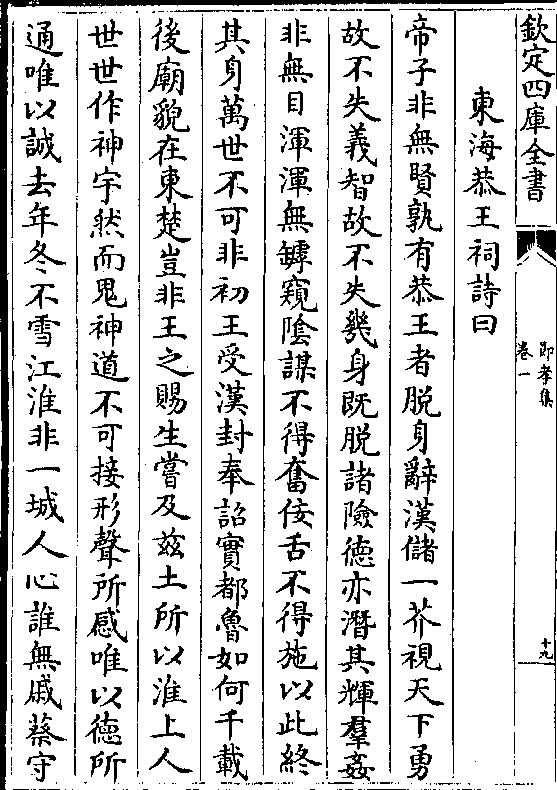 欽定四庫全書
節孝集
卷一
十九
東海恭王祠詩曰
帝子非無賢孰有恭王者脱身辭漢儲一芥視天下勇
故不失義智故不失幾身既脱諸險德亦潛其輝羣姦
非無目渾渾無罅窺隂謀不得奮佞舌不得施以此終
其身萬世不可非初王受漢封奉詔實都魯如何千載
後廟貌在東楚豈非王之賜生嘗及兹土所以淮上人
世世作神宇然而鬼神道不可接形聲所感唯以德所
通唯以誠去年冬不雪江淮非一城人心誰無戚蔡守